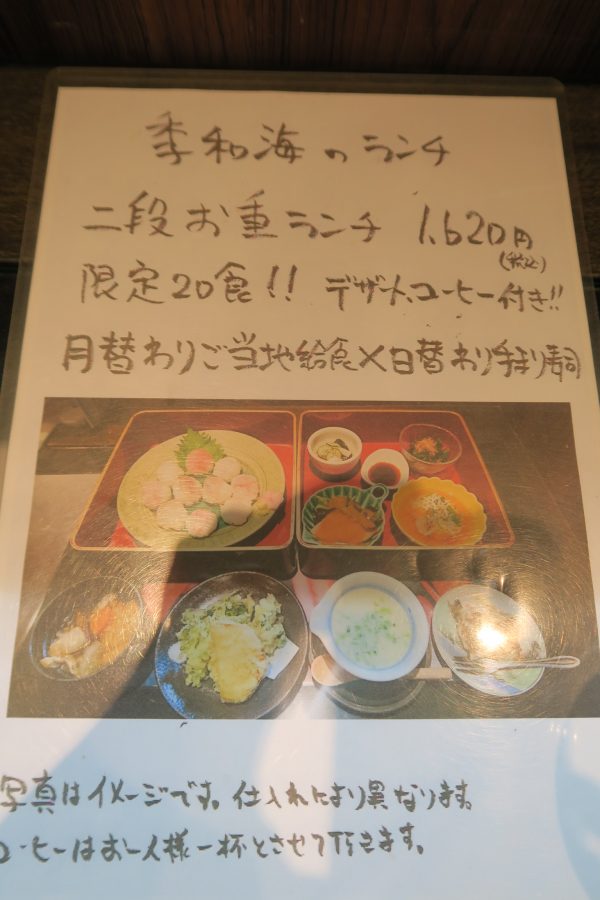 季和海のランチ
二段お重ランチ 1,620円
(税込)
限定20食!! デザート、コーヒー付き!!
月替わりご当地給食×日替わり手まり寿司
写真はイメージです。仕入れにより異なります。
コーヒーはお一人様一杯とさせて頂きます。